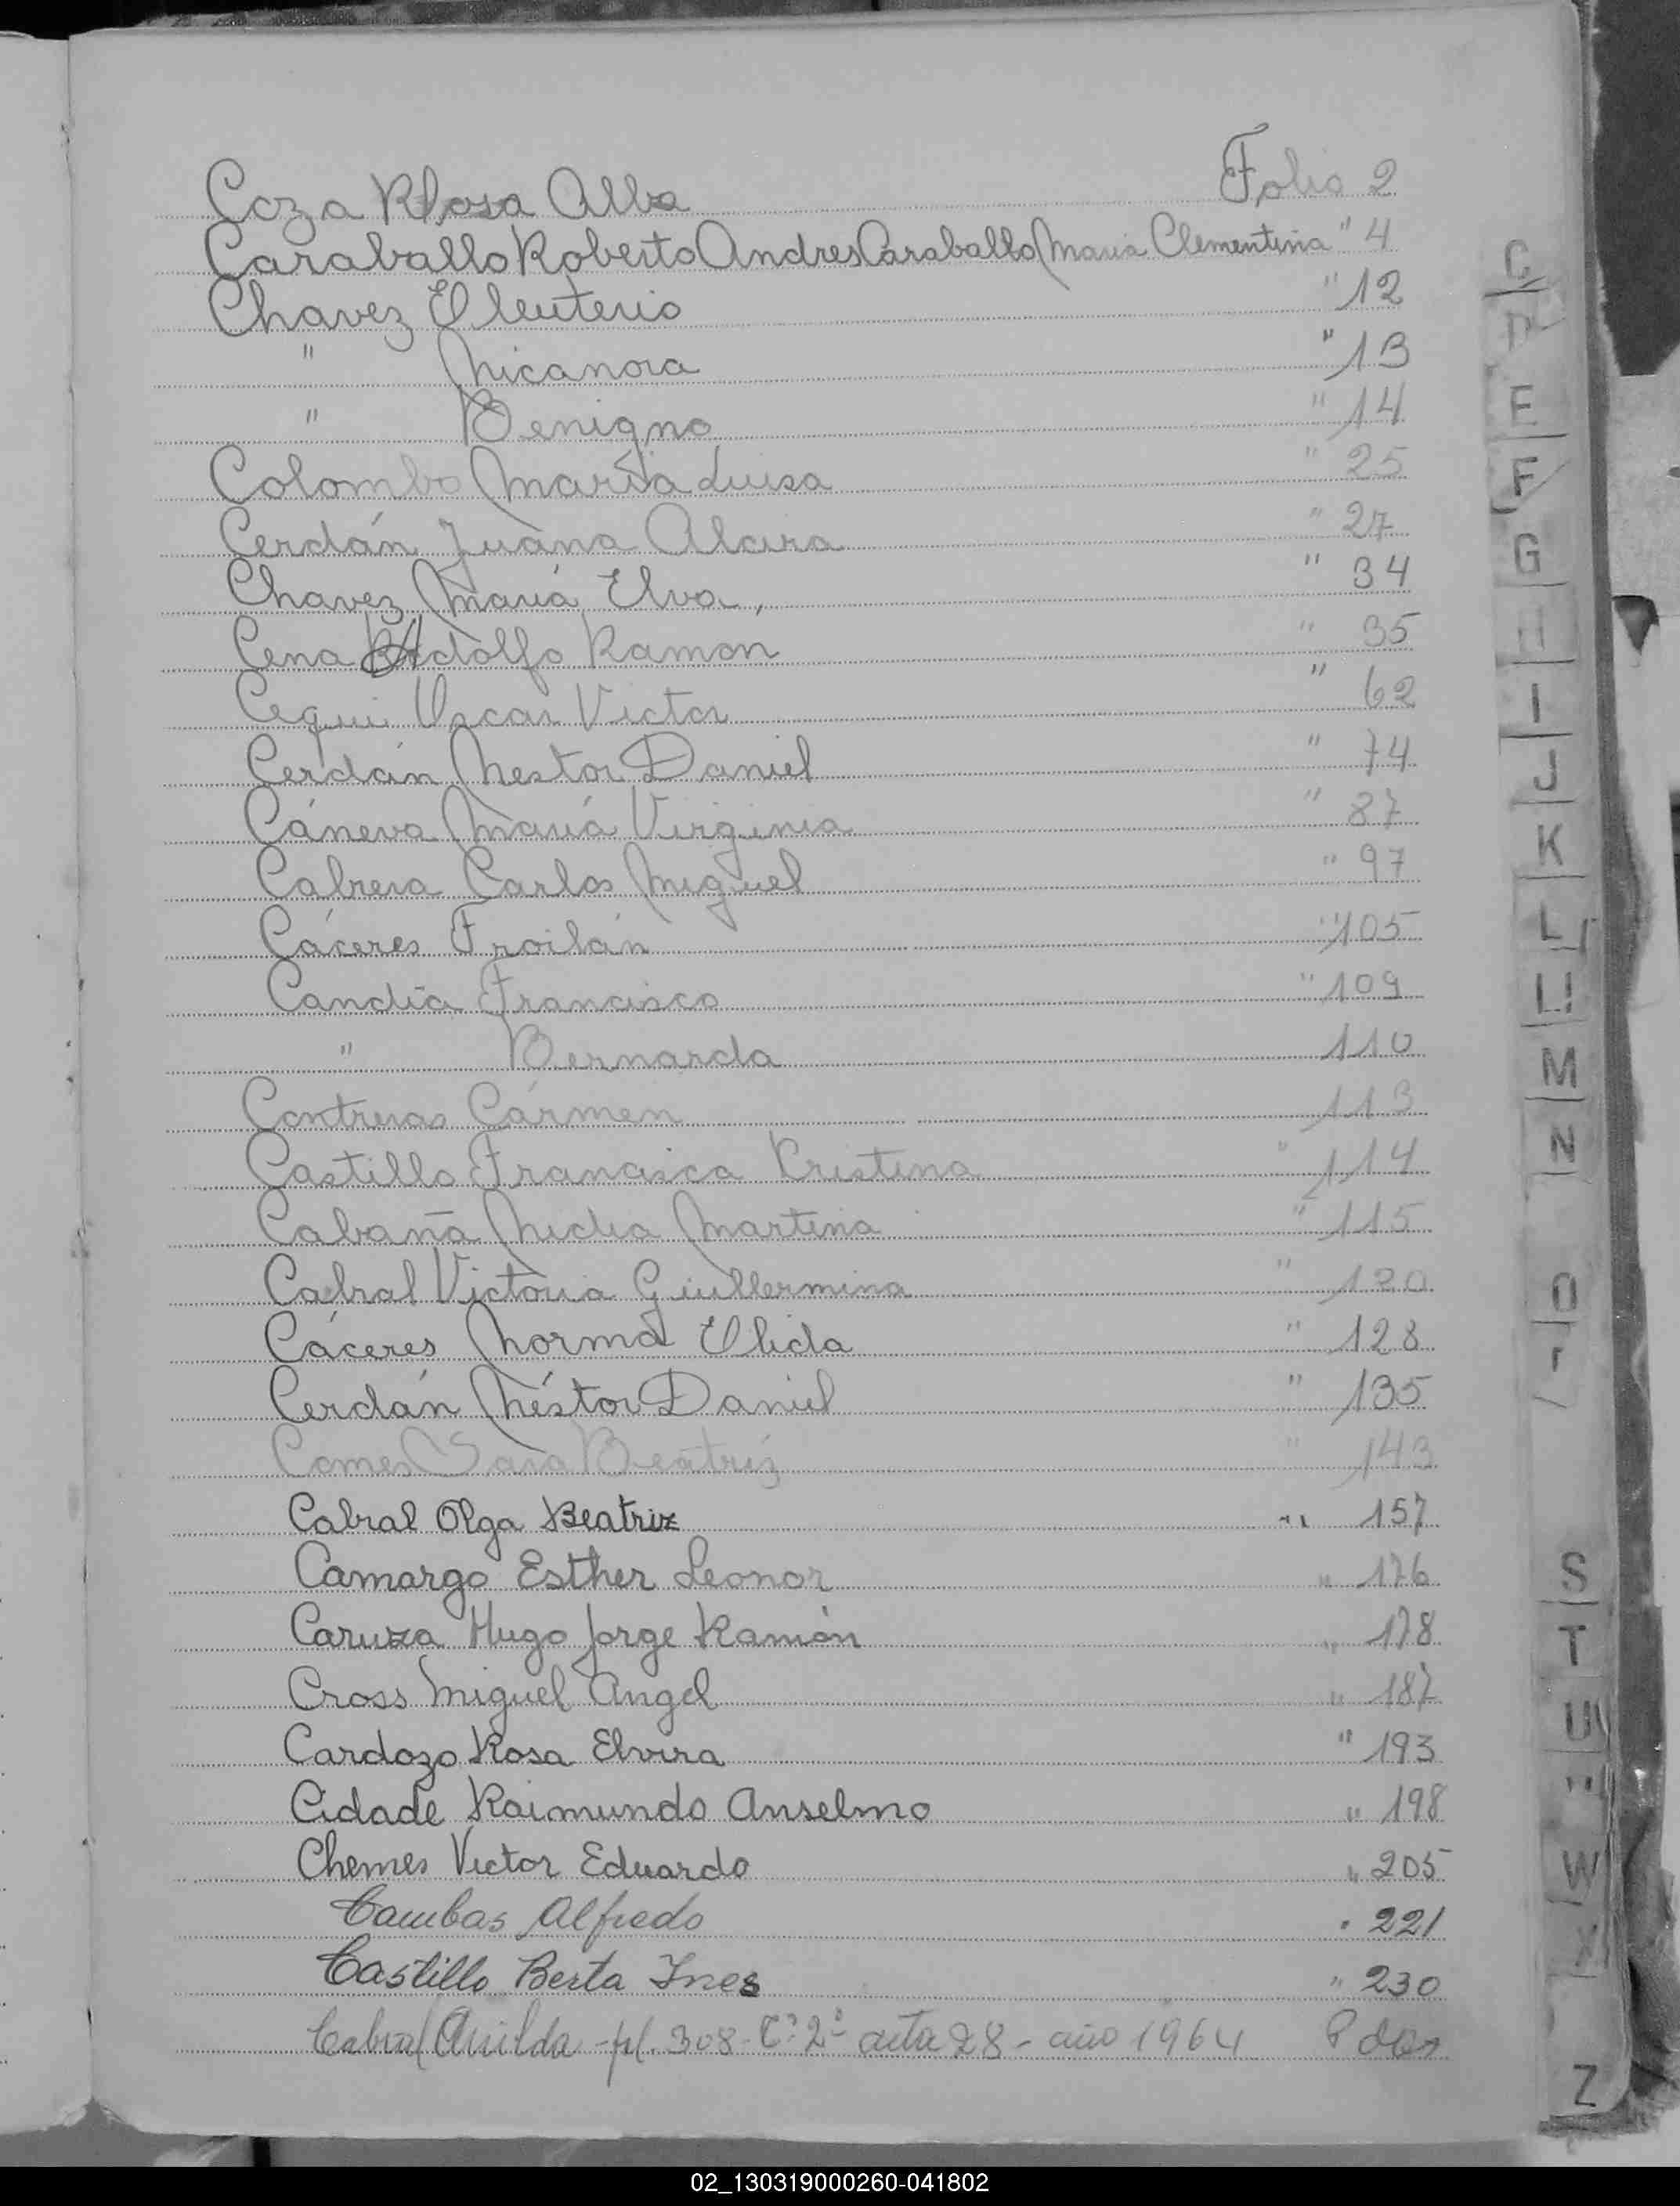 Coza Rosa Alba Folio 2
Caraballo Roberto Andres Caraballo Maria Clementina " 4
Chavez Eleuterio " 12
" Nicanora " 13
" Benigno " 14
Colombo María Luisa " 25
Cerdán Juana Alcira " 27
Chavez María Elva, " 34
Cena Adolfo Ramón " 35
Cequi Oscar Victor " 62
Cerdán Nestor Daniel " 74
Cáneva María Virginia " 87
Cabrera Carlos Miguel " 97
Cáceres Froilán " 105
Candia Francisco " 109
" Bernarda 110
Contreras Cármen 113
Castillo Francisca Kristina " 114
Cabaña Nidia Martina " 115
Cabral Victoria Guillermina " 120
Cáceres Norma Elida " 128
Cerdán Néstor Daniel " 135
Comes Sara Beatríz " 143
Cabral Olga Beatriz " 157
Camargo Esther Leonor " 176
Caruza Hugo Jorge Ramón " 178
Cross Miguel Angel " 187
Cardozo Rosa Elvira " 193
Cidade Raimundo Anselmo " 198
Chemes Victor Eduardo " 205
Cambas Alfredo " 221
Castillo Berta Ines " 230
Cabral Anilda - fl. 308 - Tº 2º - acta 28 - año 1964
C
D
E
F
G
H
I
J
K
L
LL
M
N
O
S
T
U
W
X
Z
02_130319000260-041802